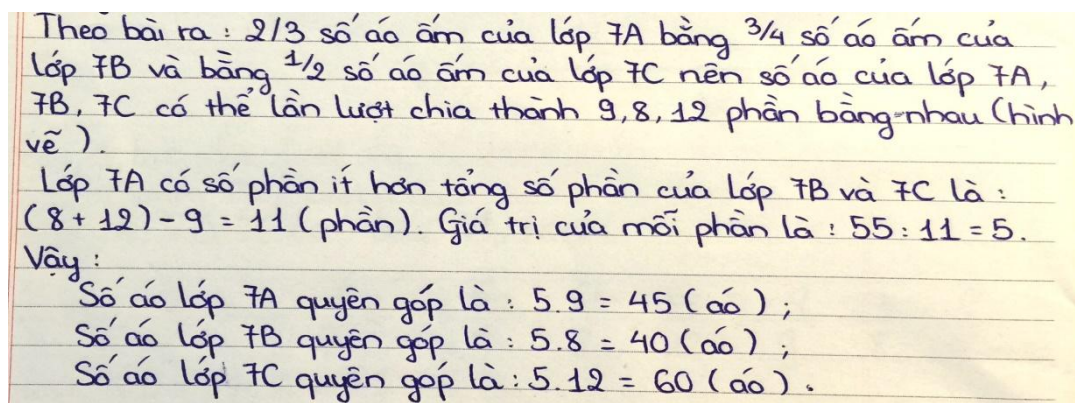 Theo bài ra : 2/3 số áo ấm của lớp 7A bằng 3/4 số áo ấm của
lớp 7B và bằng 1/2 số áo ấm của lớp 7C nên số áo của lớp 7A,
7B, 7C có thể lần lượt chia thành 9, 8, 12 phần bằng nhau (hình
vẽ ).
Lớp 7A có số phần ít hơn tổng số phần của lớp 7B và 7C là :
(8 + 12) - 9 = 11 (phần). Giá trị của mỗi phần là : 55 : 11 = 5.
Vậy :
Số áo lớp 7A quyên góp là : 5.9 = 45 (áo) ;
Số áo lớp 7B quyên góp là : 5.8 = 40 (áo) ;
Số áo lớp 7C quyên góp là : 5.12 = 60 (áo) .